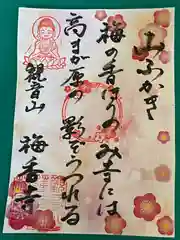 山ふかき
梅の香りのみ寺には
高まが原の影ぞうつれる
観音山
梅香寺